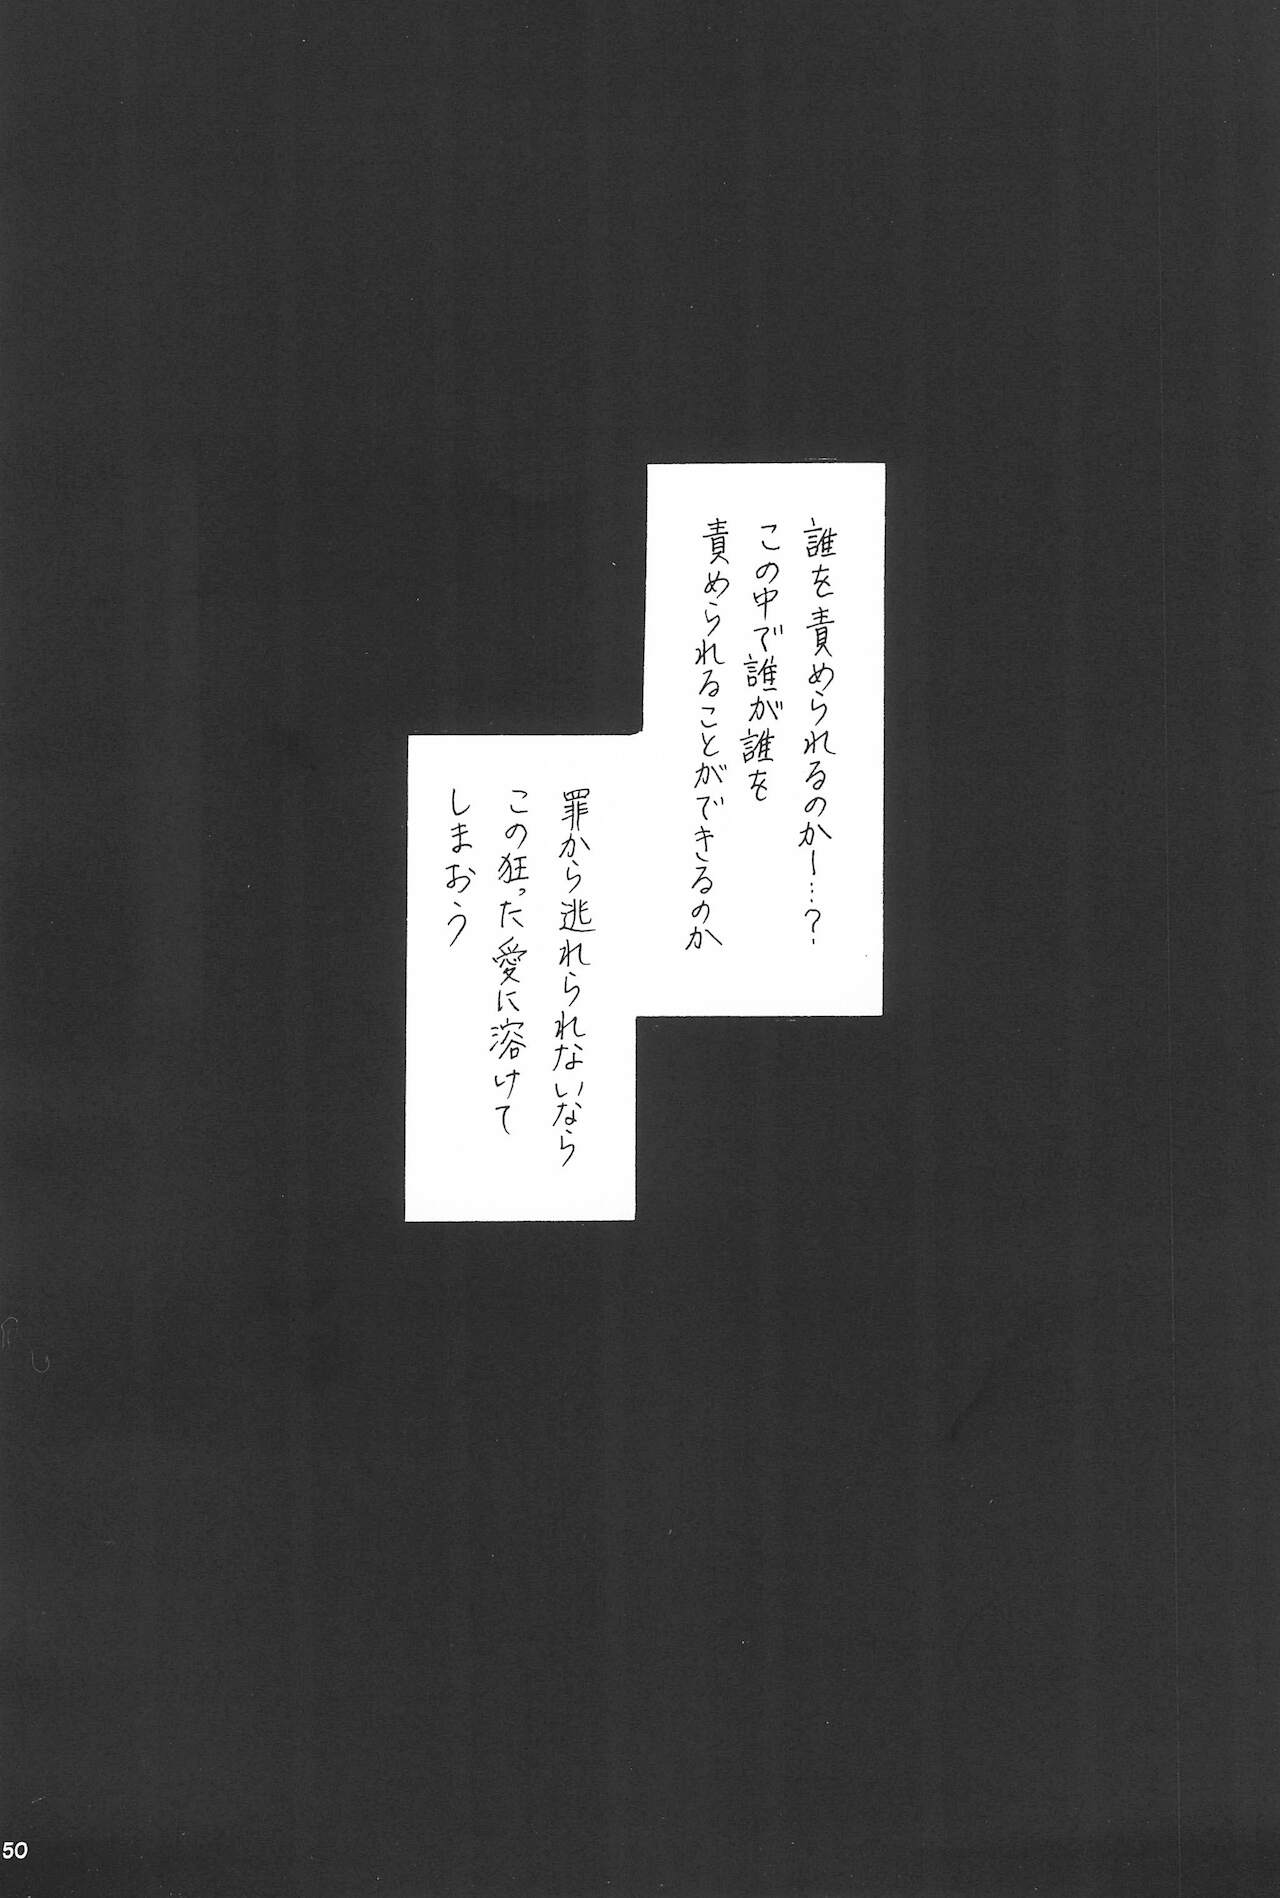 誰を責められるのかー…?
この中で誰が誰を
責められることができるのか
罪から逃れられないなら
この狂った愛に溶けて
しまおう
50